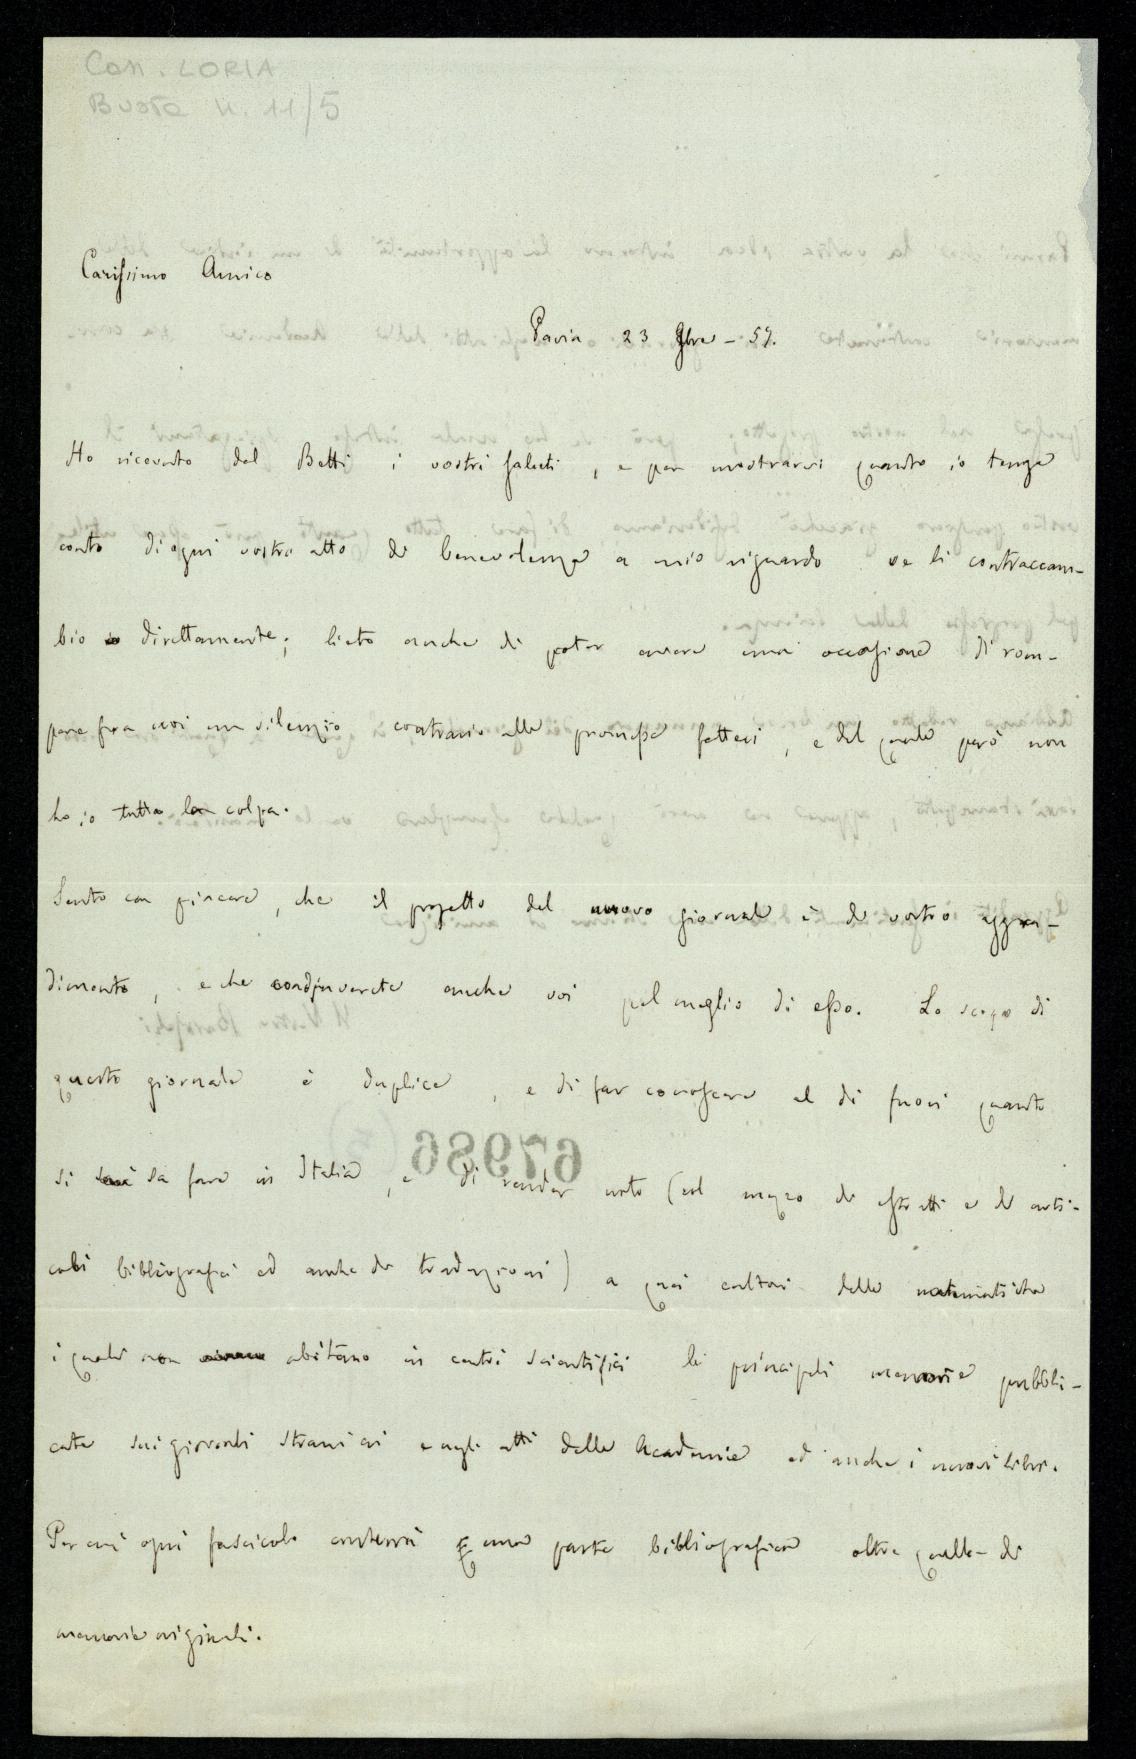 Con. LORIA
Busta n. 11/5
Carissimo Amico
Pavia 23 9bre - 57.
Ho ricevuto dal Betti i vostri saluti, e per mostrarvi quanto io tenga
conto di ogni vostro atto di benevolenza a mio riguardo ve li contraccam-
bio direttamente; lieto anche di poter avere una occasione di rom-
pere fra noi un silenzio contrario alle promesse fatteci, e del quale però non
ho io tutta la colpa.
Sento con piacere, che il progetto del nuovo giornale è di vostro aggra-
dimento, e che coadjuverete anche voi pel meglio di esso. Lo scopo di
questo giornale è duplice, e di far conoscere al di fuori quanto
si sa fare in Italia, e di render noto (col mezzo di estratti e di arti-
coli bibliografici ed anche di traduzioni) a quei cultori delle matematiche
i quali non abitano in centri scientifici le principali memorie pubbli-
cate sui giornali stranieri e negli atti delle Academie ed anche i nuovi libri.
Per cui ogni fascicolo conterrà una parte bibliografica oltre quella di
memorie originali.
67986